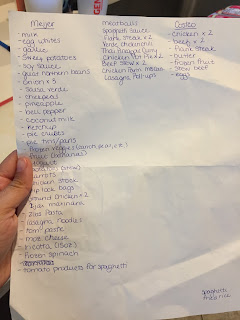 Meijer
- milk
- egg whites
- garlic
- sweet potatoes
- soy sauce
- great northern beans
- onion x 3
- salsa verde
- chickpeas
- pineapple
- bell pepper
- coconut milk
- ketchup
- pie crusts
- pie tins/pans
- frozen veggies
- fruit
carrots
chicken stock
zip lock bags
ground chicken x 2
marinara
- ziti pasta
- lasagna noodles
- tom. paste
- moz cheese
- ricotta (15oz)
- frozen spinach
- tomato products for spaghetti
meatballs
spaghetti sauce
flank steak x 2
verde chicken chili
Thai Pineapple Curry
chicken Pot Pie x 2
Beef Stew x 2
chicken parm meatballs
Lasagna Roll-ups
Costco
- chicken x 2
- beef x 2
- flank steak
- butter
- frozen fruit
- stew beef
- egg
spaghetti
fried rice